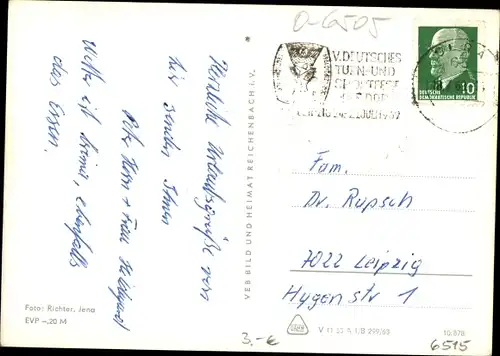 O-6505
V. DEUTSCHES
TURN-UND
SPORTFEST
DER DDR
LEIPZIG JULI 1969
DEUTSCHE
DEMOKRATISCHE REPUBLIK 10
Herzliche Urlaubsgrüße von
hier senden Ihnen
Herr + Frau
Wetter ist prima, ebenfalls
das Essen.
VEB BILD UND HEIMAT REICHENBACH i. V.
Fam.
Dr. Rupsch
7022 Leipzig
Hygenstr 1
Foto: Richter, Jena
EVP -,20 M
3.- €
V 11 50 A 1/B
6515